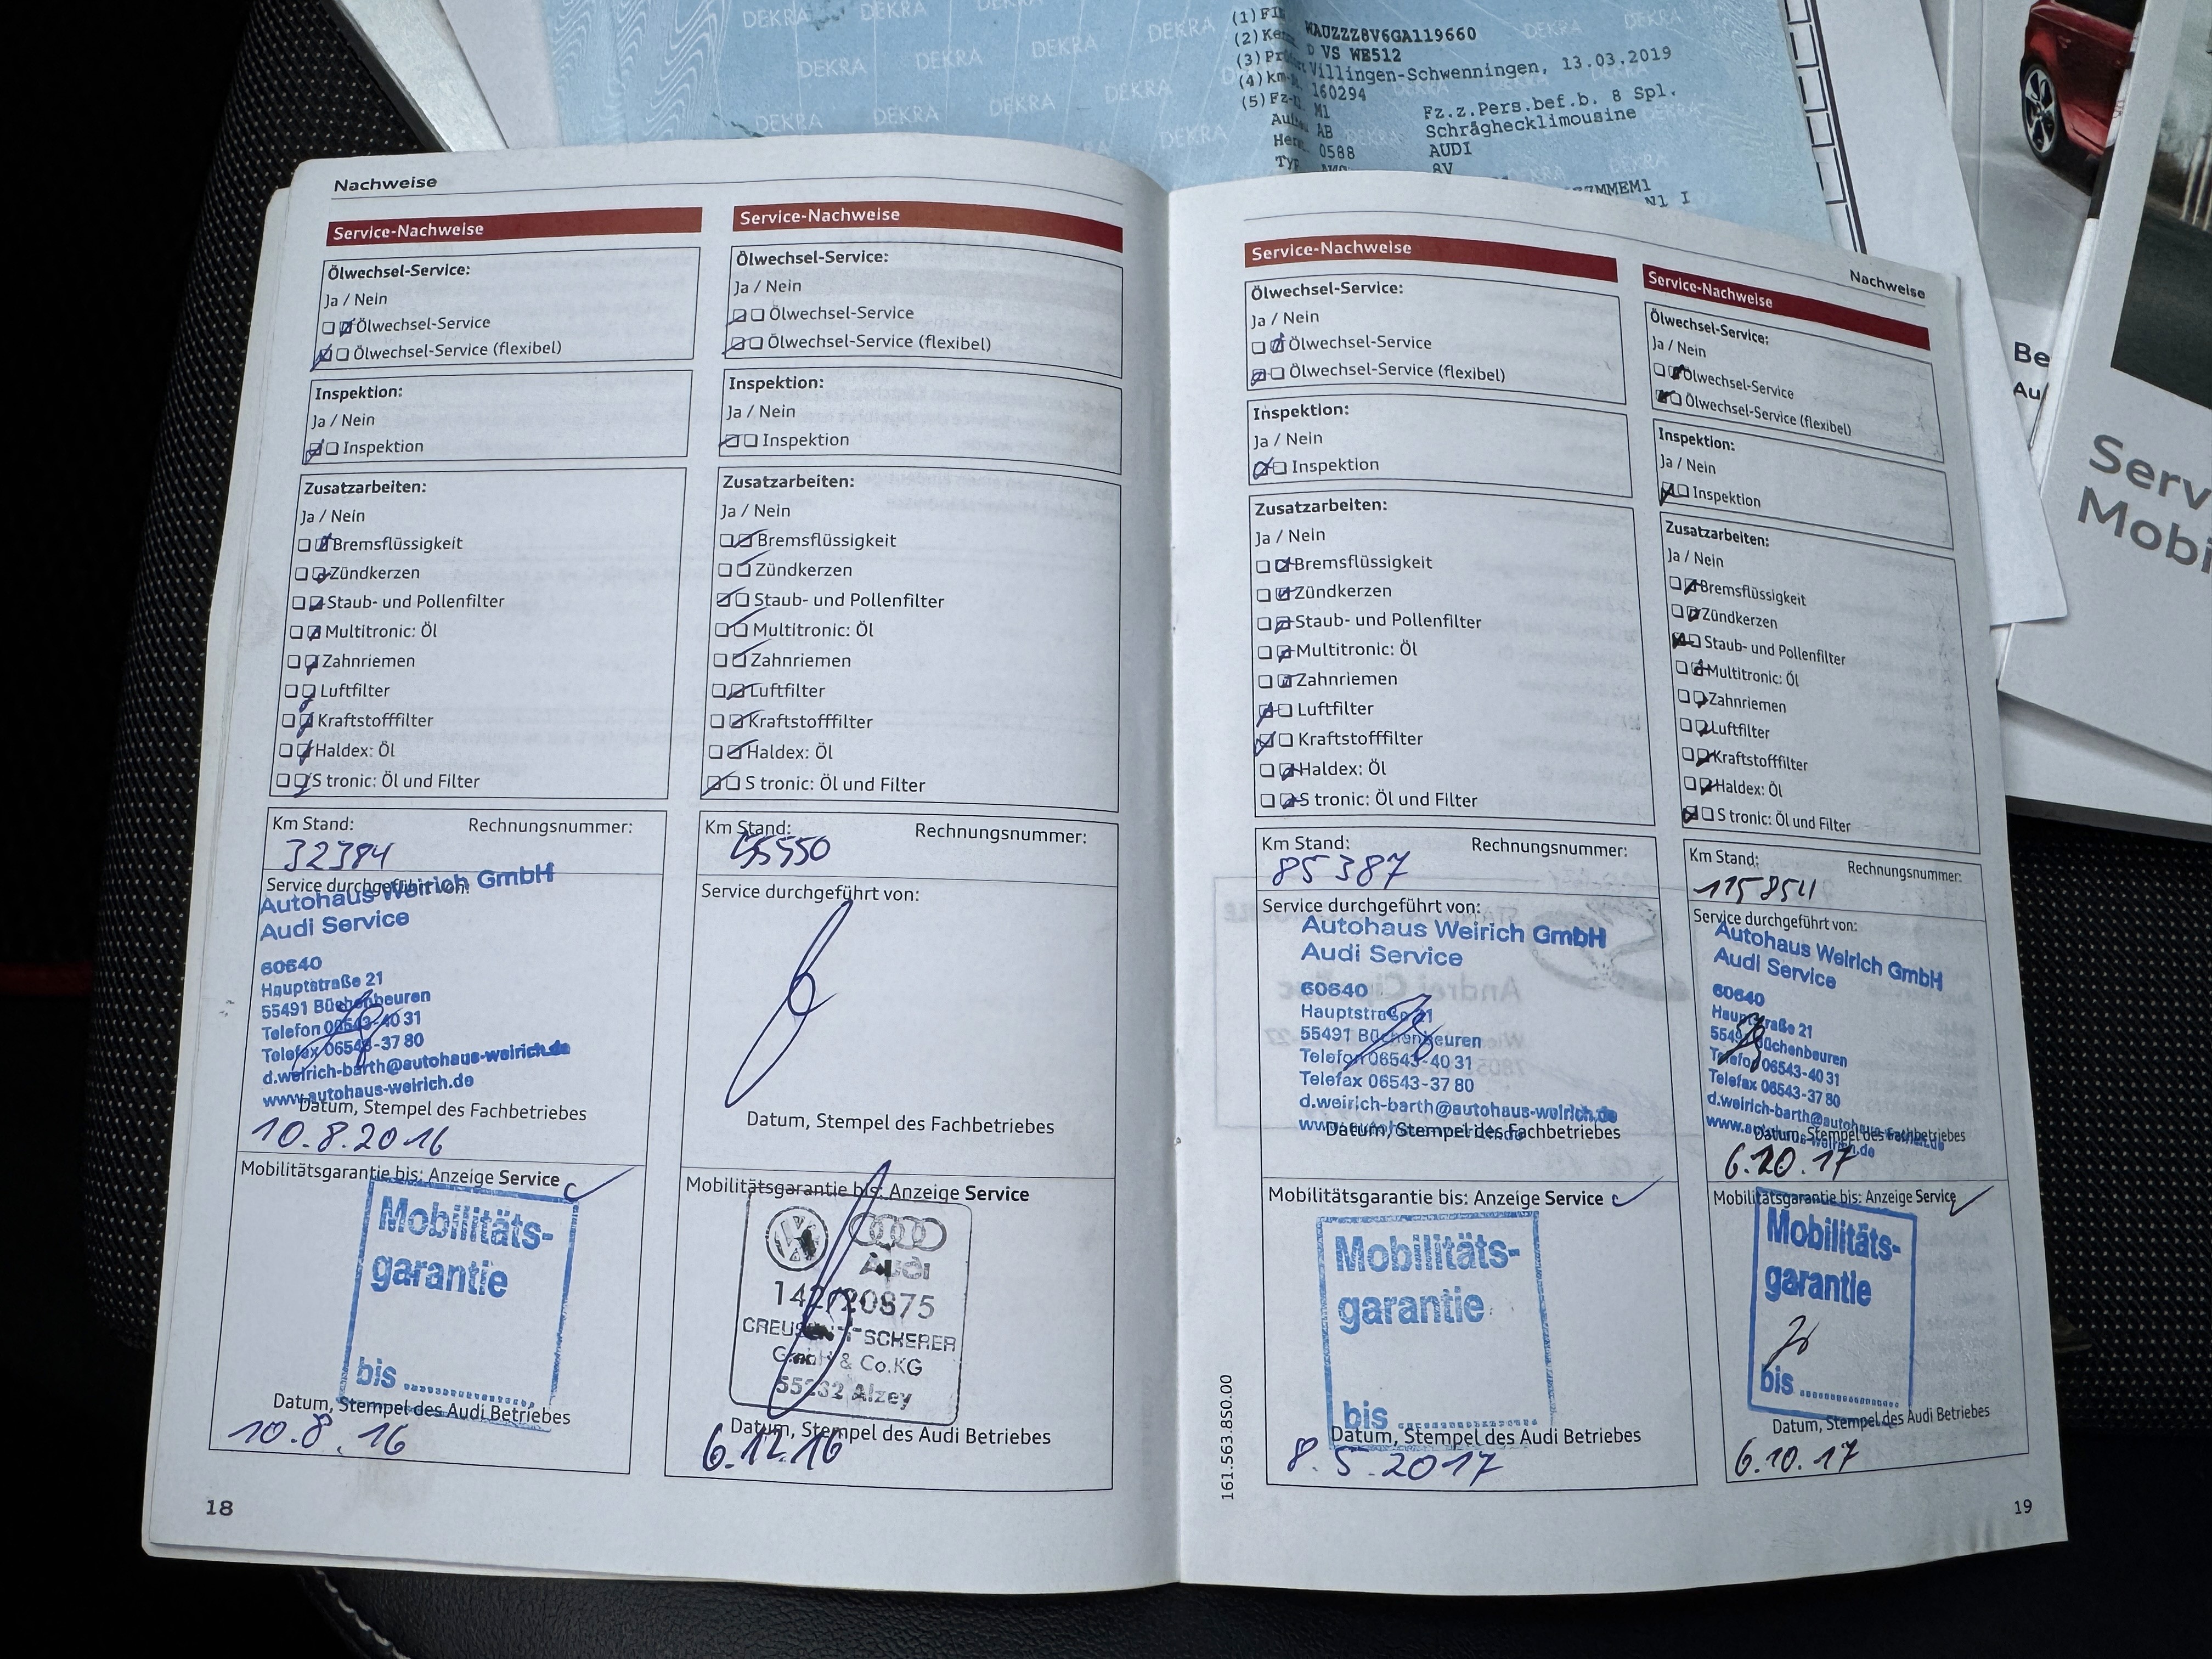 DEKRA DEKRA DEKRA
DEKRA DEKRA DEKRA DEKRA
DEKRA DEKRA DEKRA
DEKRA DEKRA
(1) FI
WAUZZZ8V6GA119660
(2)
D VS WB512
(3)
Villingen-Schwenningen, 13.03.2019
(4) km-
160294
(5) Fz-
M1 Fz.z.Pers.bef.b. 8 Spl.
AB Schräghecklimousine
0588 AUDI
8V
Be
Au
Serv
Mobi
Nachweise
Service-Nachweise
Ölwechsel-Service:
Ja / Nein
Ölwechsel-Service
Ölwechsel-Service (flexibel)
Inspektion:
Ja / Nein
Inspektion
Zusatzarbeiten:
Ja / Nein
Bremsflüssigkeit
Zündkerzen
Staub- und Pollenfilter
Multitronic: Öl
Zahnriemen
Luftfilter
Kraftstofffilter
Haldex: Öl
S tronic: Öl und Filter
Km Stand: Rechnungsnummer:
32384
Service durchgeführt von:
Autohaus Weirich GmbH
Audi Service
60640
Hauptstraße 21
55491 Büchenbeuren
Telefon 06543-40 31
Telefax 06543-37 80
d.weirich-barth@autohaus-weirich.de
www.autohaus-weirich.de
Datum, Stempel des Fachbetriebes
10.8.2016
Mobilitätsgarantie bis: Anzeige Service
Mobilitäts-
garantie
bis
Datum, Stempel des Audi Betriebes
10.8.16
18
Service-Nachweise
Ölwechsel-Service:
Ja / Nein
Ölwechsel-Service
Ölwechsel-Service (flexibel)
Inspektion:
Ja / Nein
Inspektion
Zusatzarbeiten:
Ja / Nein
Bremsflüssigkeit
Zündkerzen
Staub- und Pollenfilter
Multitronic: Öl
Zahnriemen
Luftfilter
Kraftstofffilter
Haldex: Öl
S tronic: Öl und Filter
Km Stand: Rechnungsnummer:
55550
Service durchgeführt von:
Datum, Stempel des Fachbetriebes
Mobilitätsgarantie bis: Anzeige Service
Audi
GmbH & Co.KG
55232 Alzey
Datum, Stempel des Audi Betriebes
6.12.16
Service-Nachweise
Ölwechsel-Service:
Ja / Nein
Ölwechsel-Service
Ölwechsel-Service (flexibel)
Inspektion:
Ja / Nein
Inspektion
Zusatzarbeiten:
Ja / Nein
Bremsflüssigkeit
Zündkerzen
Staub- und Pollenfilter
Multitronic: Öl
Zahnriemen
Luftfilter
Kraftstofffilter
Haldex: Öl
S tronic: Öl und Filter
Km Stand: Rechnungsnummer:
85387
Service durchgeführt von:
Autohaus Weirich GmbH
Audi Service
60640
Hauptstraße 21
55491 Büchenbeuren
Telefon 06543-40 31
Telefax 06543-37 80
d.weirich-barth@autohaus-weirich.de
Datum, Stempel des Fachbetriebes
Mobilitätsgarantie bis: Anzeige Service
Mobilitäts-
garantie
bis
Datum, Stempel des Audi Betriebes
8.5.2017
161.563.8S0.00
Nachweise
Service-Nachweise
Ölwechsel-Service:
Ja / Nein
Ölwechsel-Service
Ölwechsel-Service (flexibel)
Inspektion:
Ja / Nein
Inspektion
Zusatzarbeiten:
Ja / Nein
Bremsflüssigkeit
Zündkerzen
Staub- und Pollenfilter
Multitronic: Öl
Zahnriemen
Luftfilter
Kraftstofffilter
Haldex: Öl
S tronic: Öl und Filter
Km Stand: Rechnungsnummer:
115854
Service durchgeführt von:
Autohaus Weirich GmbH
Audi Service
60640
Hauptstraße 21
55491 Büchenbeuren
Telefon 06543-40 31
Telefax 06543-37 80
d.weirich-barth@autohaus-weirich.de
Datum, Stempel des Fachbetriebes
6.10.17
Mobilitätsgarantie bis: Anzeige Service
Mobilitäts-
garantie
bis
Datum, Stempel des Audi Betriebes
6.10.17
19